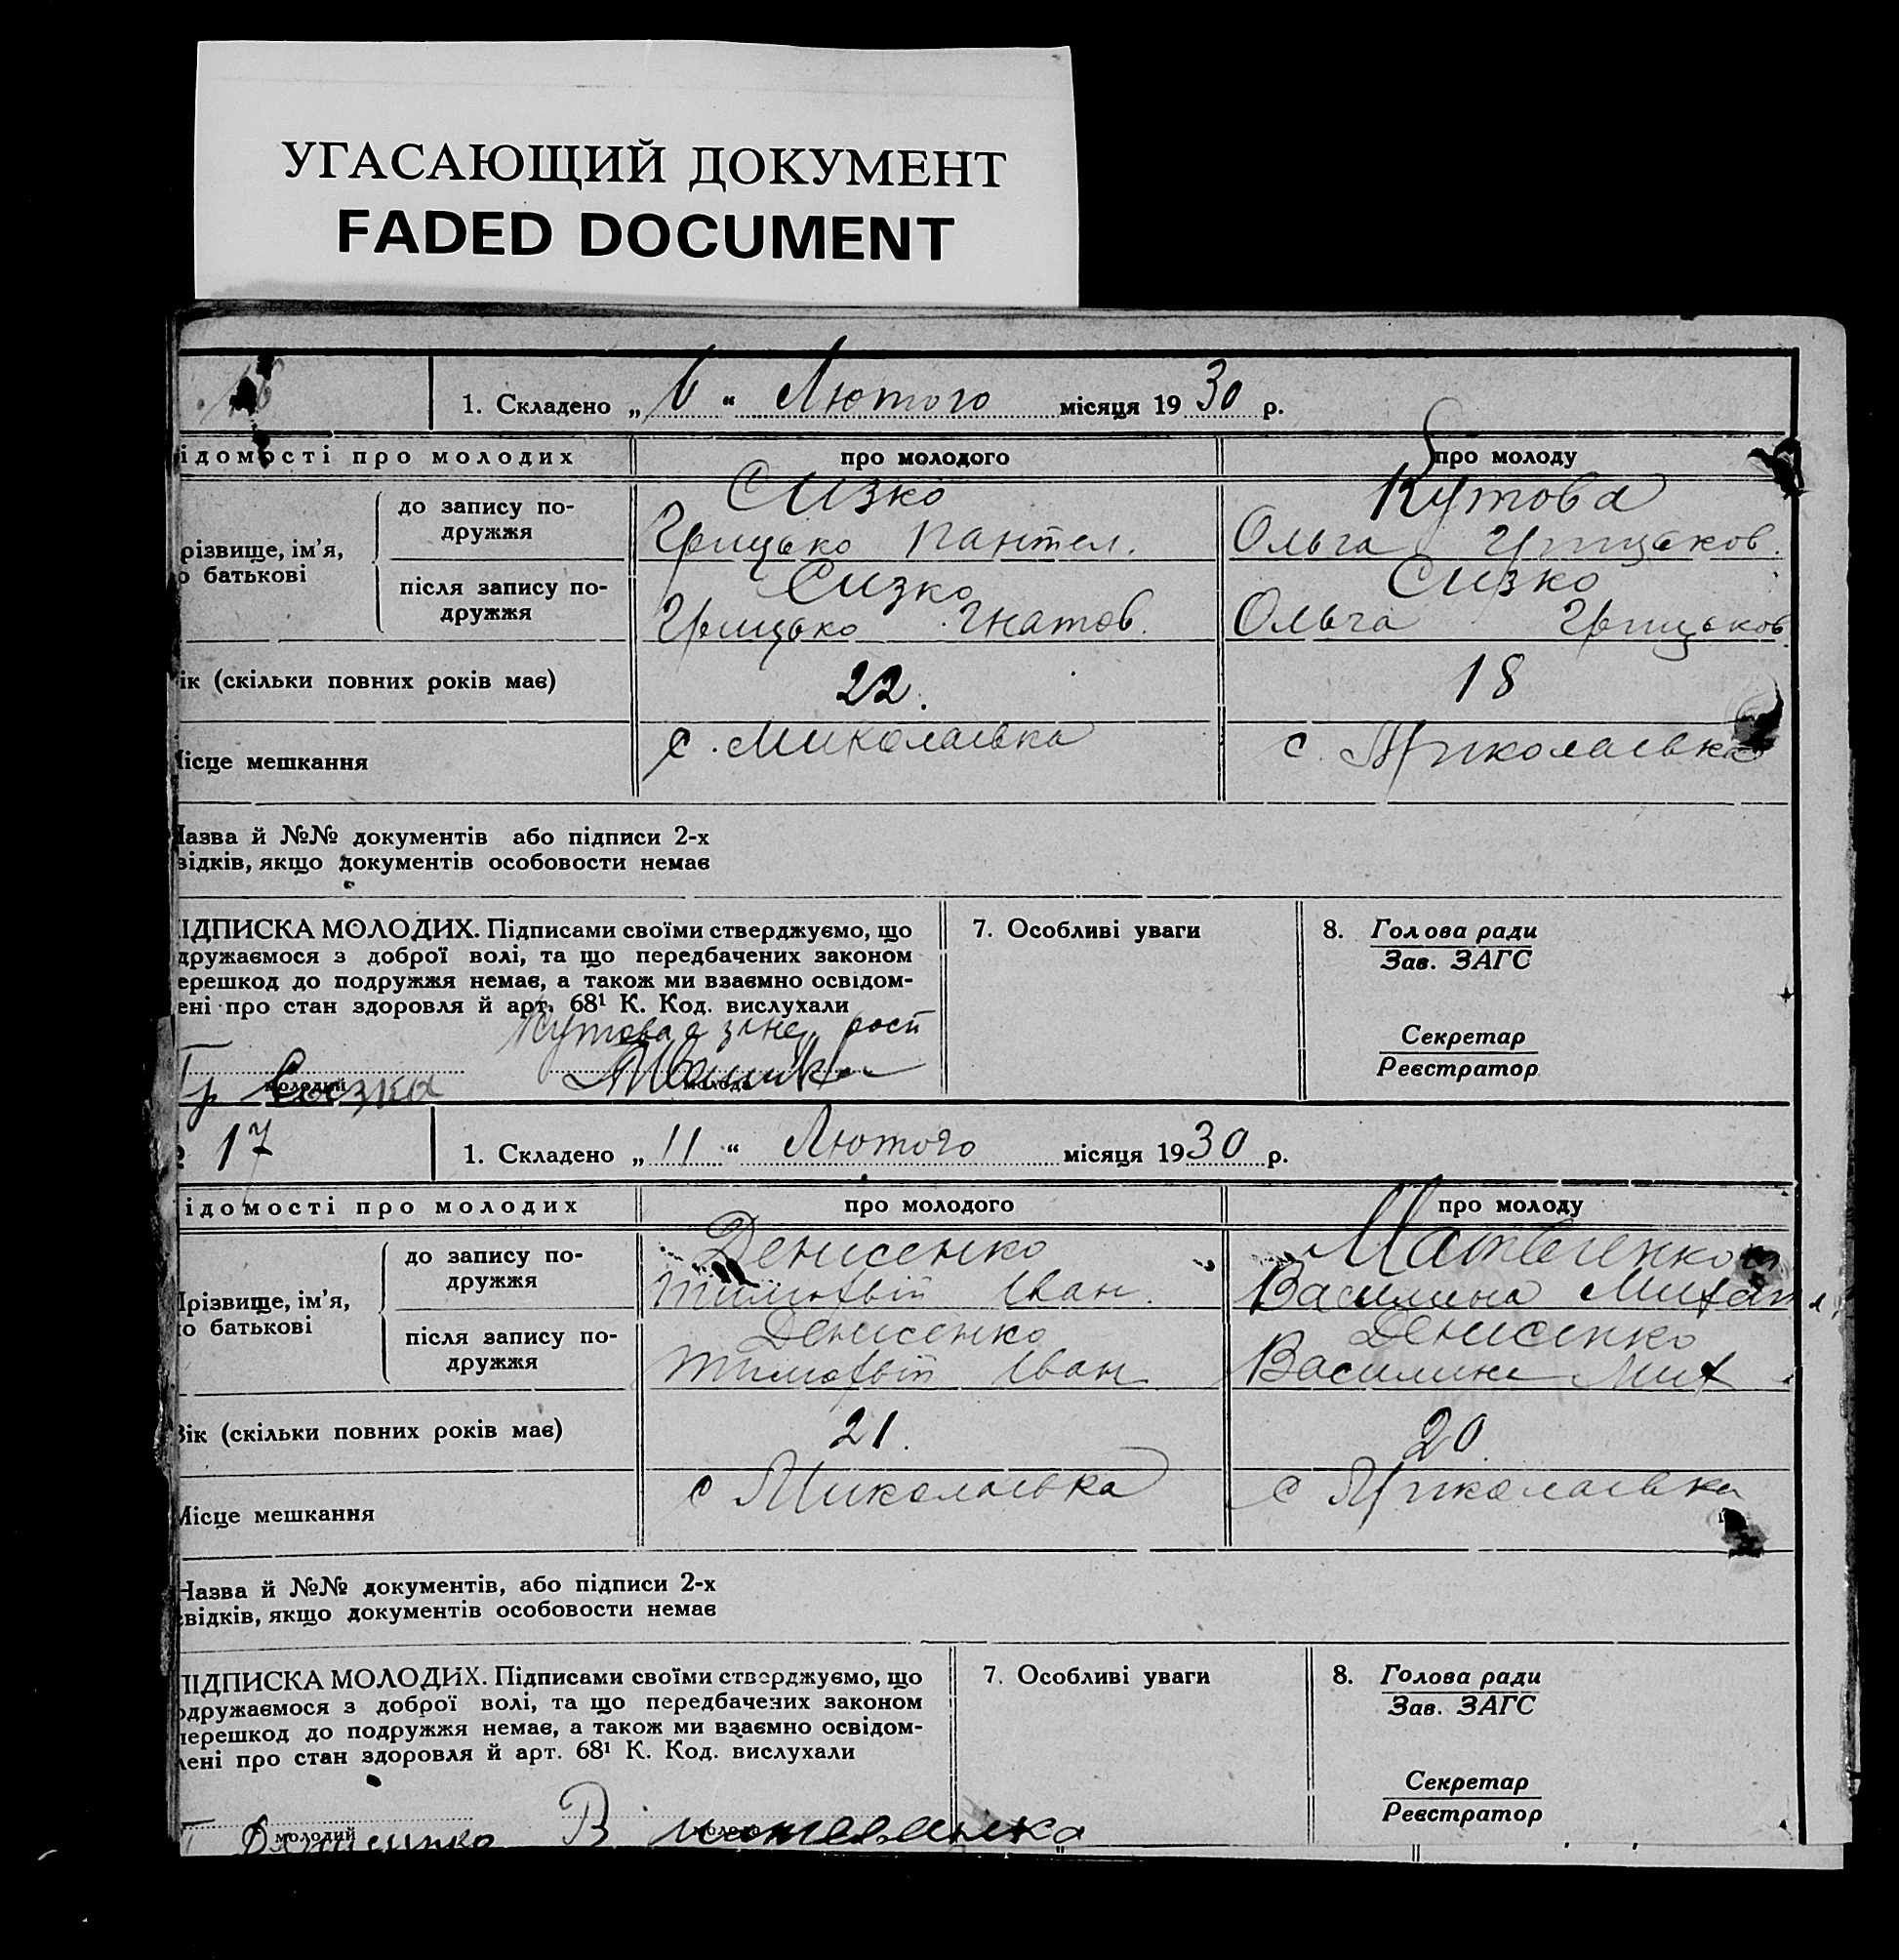 УГАСАЮЩИЙ ДОКУМЕНТ
FADED DOCUMENT
1. Складено „ 6 “ Лютого місяця 19 30 р.
ідомості про молодих про молодого про молоду
Сизко Кутова
до запису по-
дружжя
Грицько Пантел. Ольга Грицьков.
різвище, ім’я,
о батькові
Сизко Сизко
після запису по-
дружжя
Грицько Гнатов. Ольга Грицьков
ік (скільки повних років має) 22. 18
с. Миколаівка с. Миколаівка
ісце мешкання
Назва й №№ документів або підписи 2-х
відків, якщо документів особовости немає
ІДПИСКА МОЛОДИХ. Підписами своїми стверджуємо, що
дружаємося з доброї волі, та що передбачених законом
ерешкод до подружжя немає, а також ми взаємно освідом-
ені про стан здоровля й арт. 68¹ К. Код. вислухали
7. Особливі уваги
8. Голова ради
Зав. ЗАГС
Секретар
Реєстратор
Кутова
Гр Сизко
молодий молода
17 1. Складено „ 11 “ Лютого місяця 19 30 р.
ідомості про молодих про молодого про молоду
Денисенко Матвіенко
до запису по-
дружжя
Тимофвій Іван. Василина Михайл
Прізвище, ім’я,
о батькові
Денисенко Денисенко
після запису по-
дружжя
Тимофвій Іван Василина Мих
Вік (скільки повних років має) 21. 20
с Миколаівка с Миколаівка
Місце мешкання
Назва й №№ документів, або підписи 2-х
свідків, якщо документів особовости немає
ПІДПИСКА МОЛОДИХ. Підписами своїми стверджуємо, що
одружаємося з доброї волі, та що передбачених законом
перешкод до подружжя немає, а також ми взаємно освідом-
лені про стан здоровля й арт. 68¹ К. Код. вислухали
7. Особливі уваги
8. Голова ради
Зав. ЗАГС
Секретар
Реєстратор
молодий молода